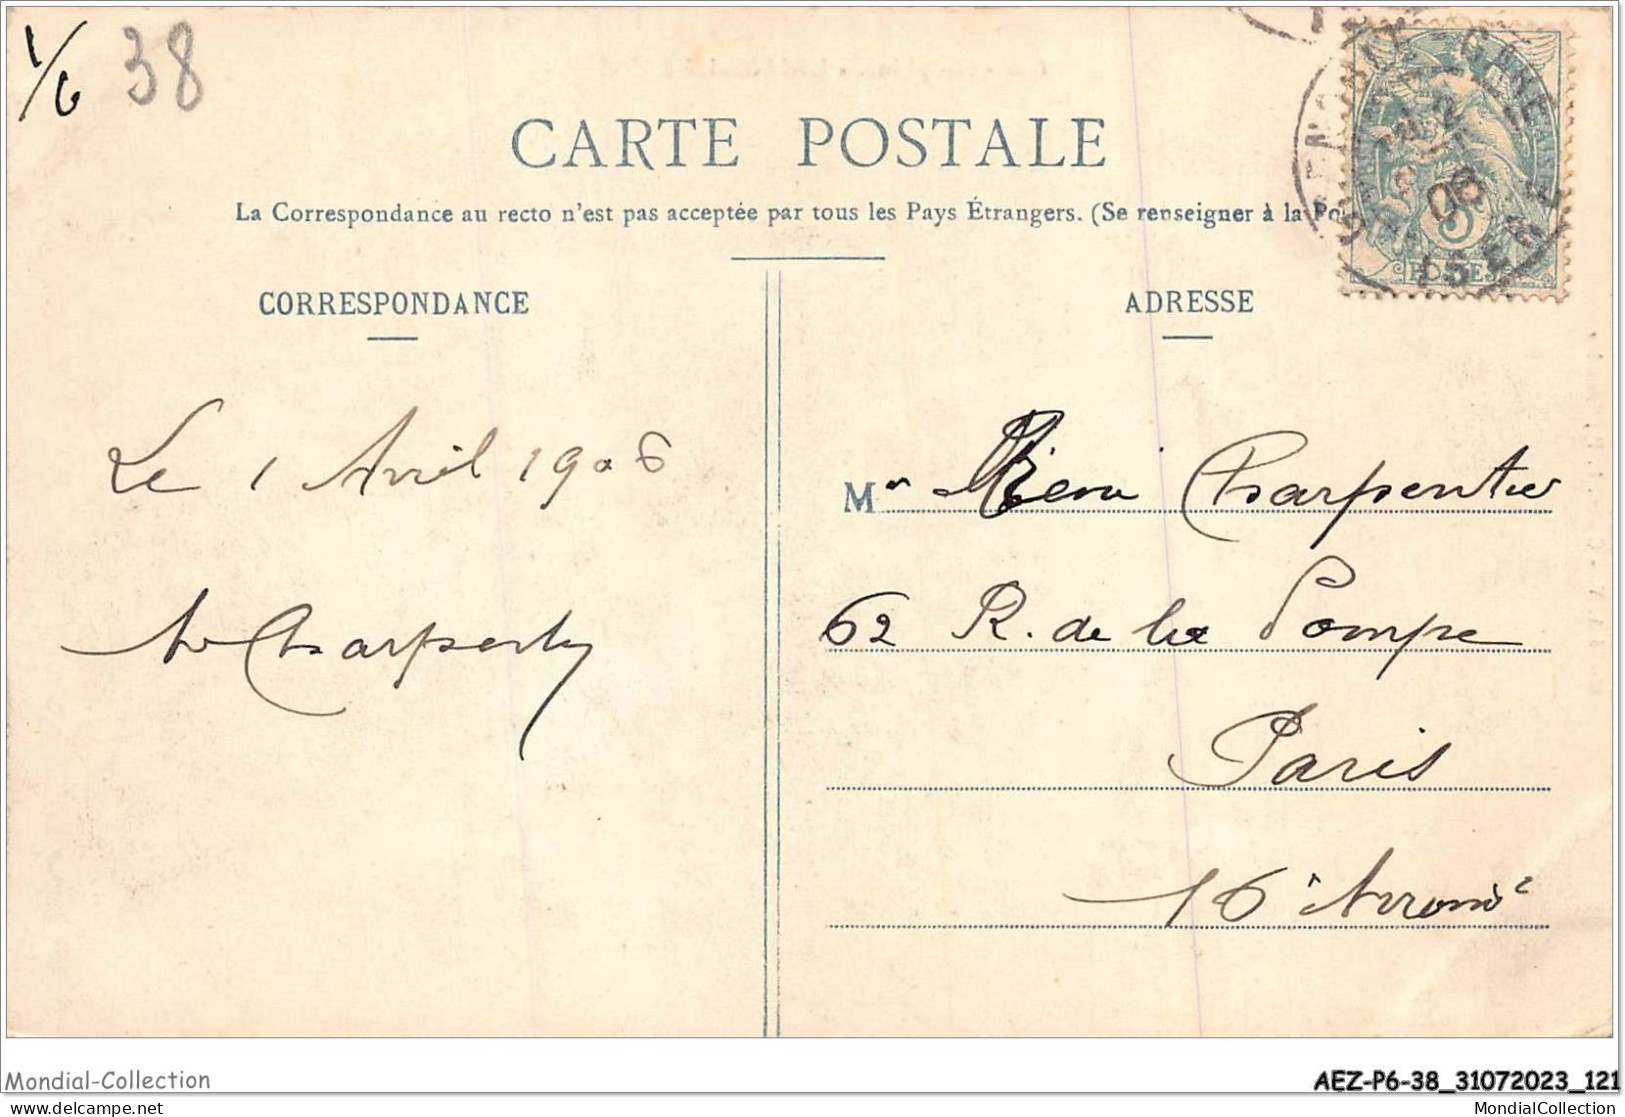 1/6 38
CARTE POSTALE
La Correspondance au recto n'est pas acceptée par tous les Pays Étrangers. (Se renseigner à la Po
CORRESPONDANCE
ADRESSE
Le 1 Avril 1906
Charpentier
Mr Charpentier
62 R. de la Pompe
Paris
16e Arrondt
GRENOBLE - GARE
2
06
ISERE
5
POSTES
Mondial-Collection
AEZ-P6-38_31072023_121
delcampe.net
MondialCollection